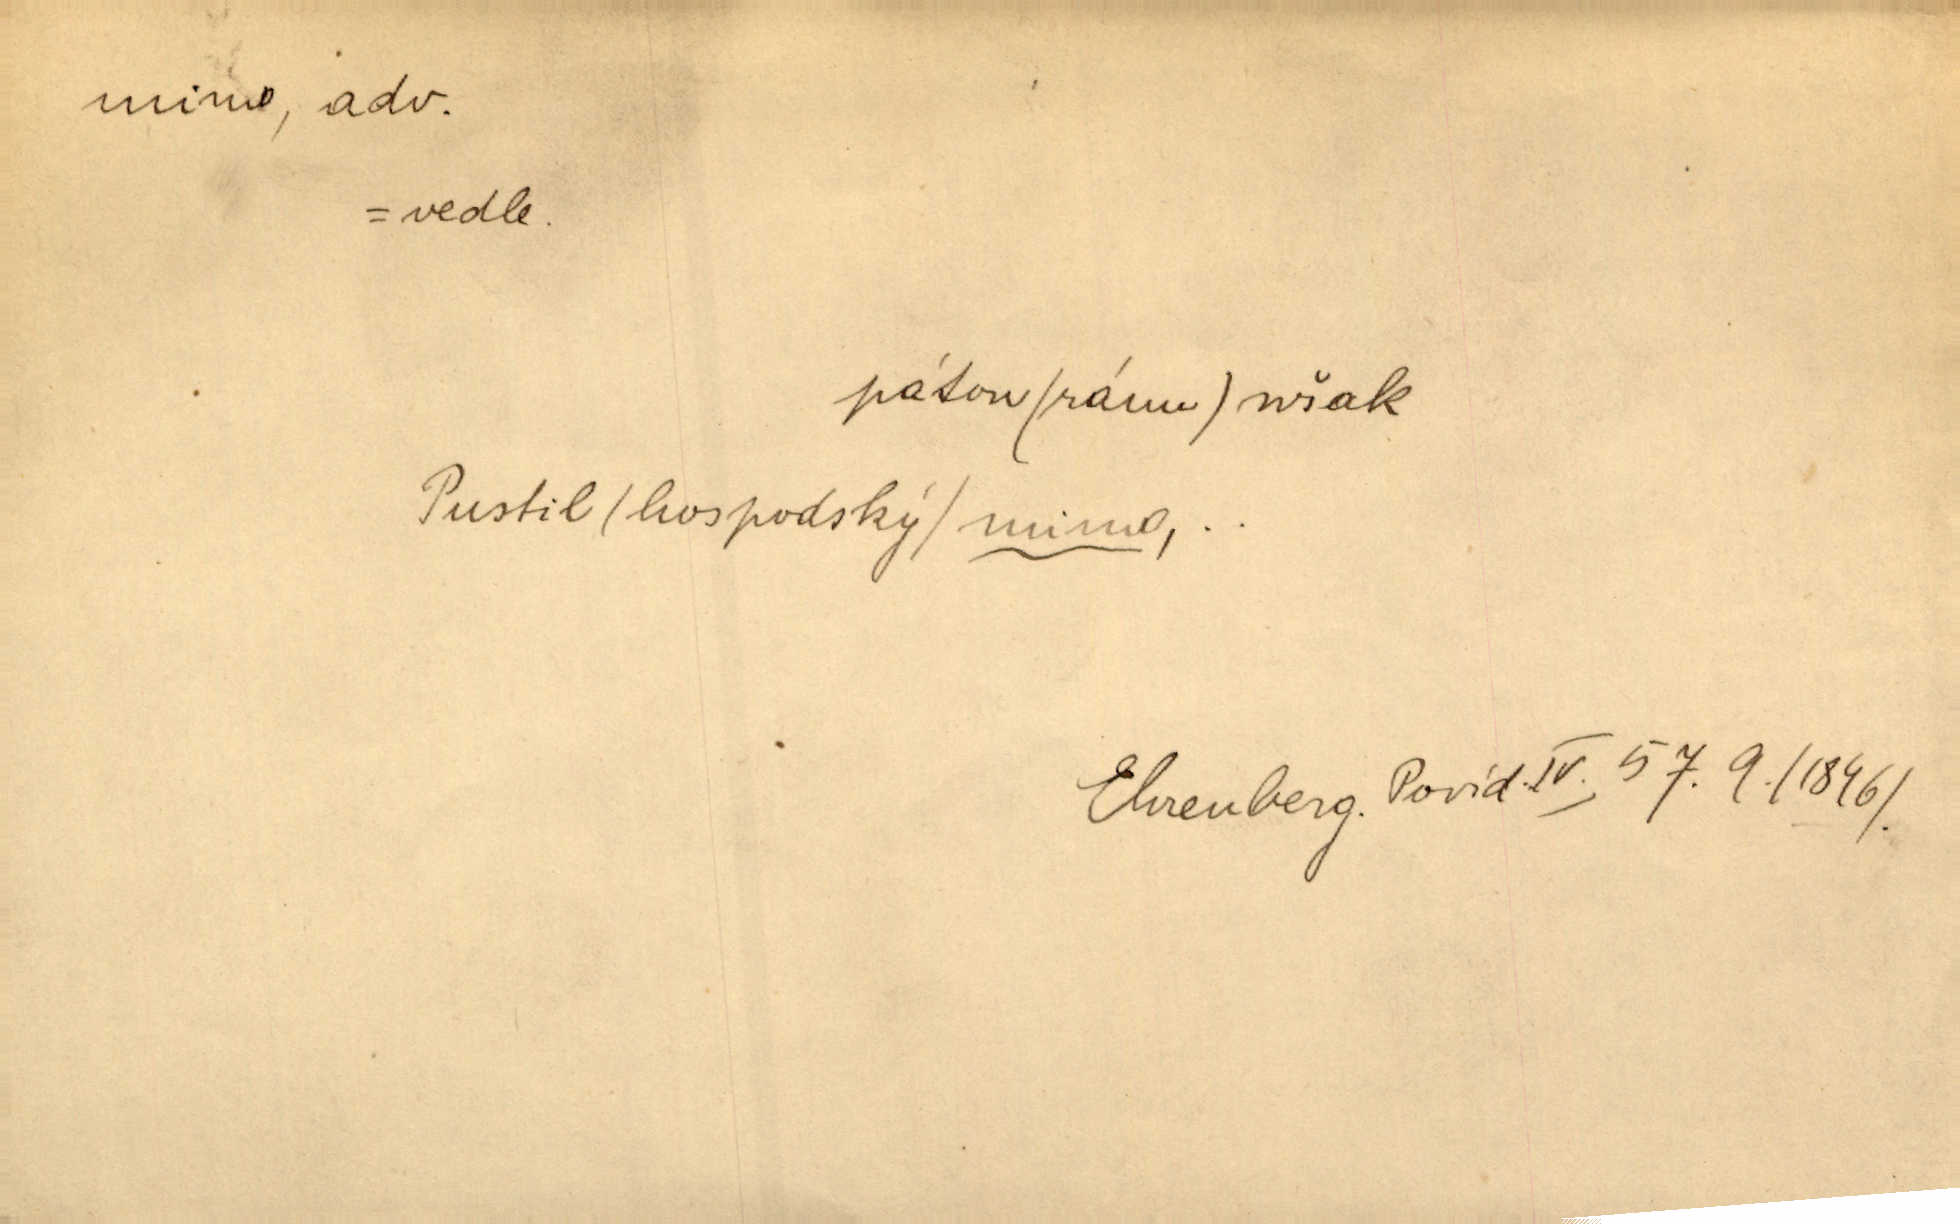 mimo, adv.
= vedle.
pátou (ránu) však
Pustil (hospodský) mimo, . .
Ehrenberg. Povíd. IV. 57. 9. (1896).